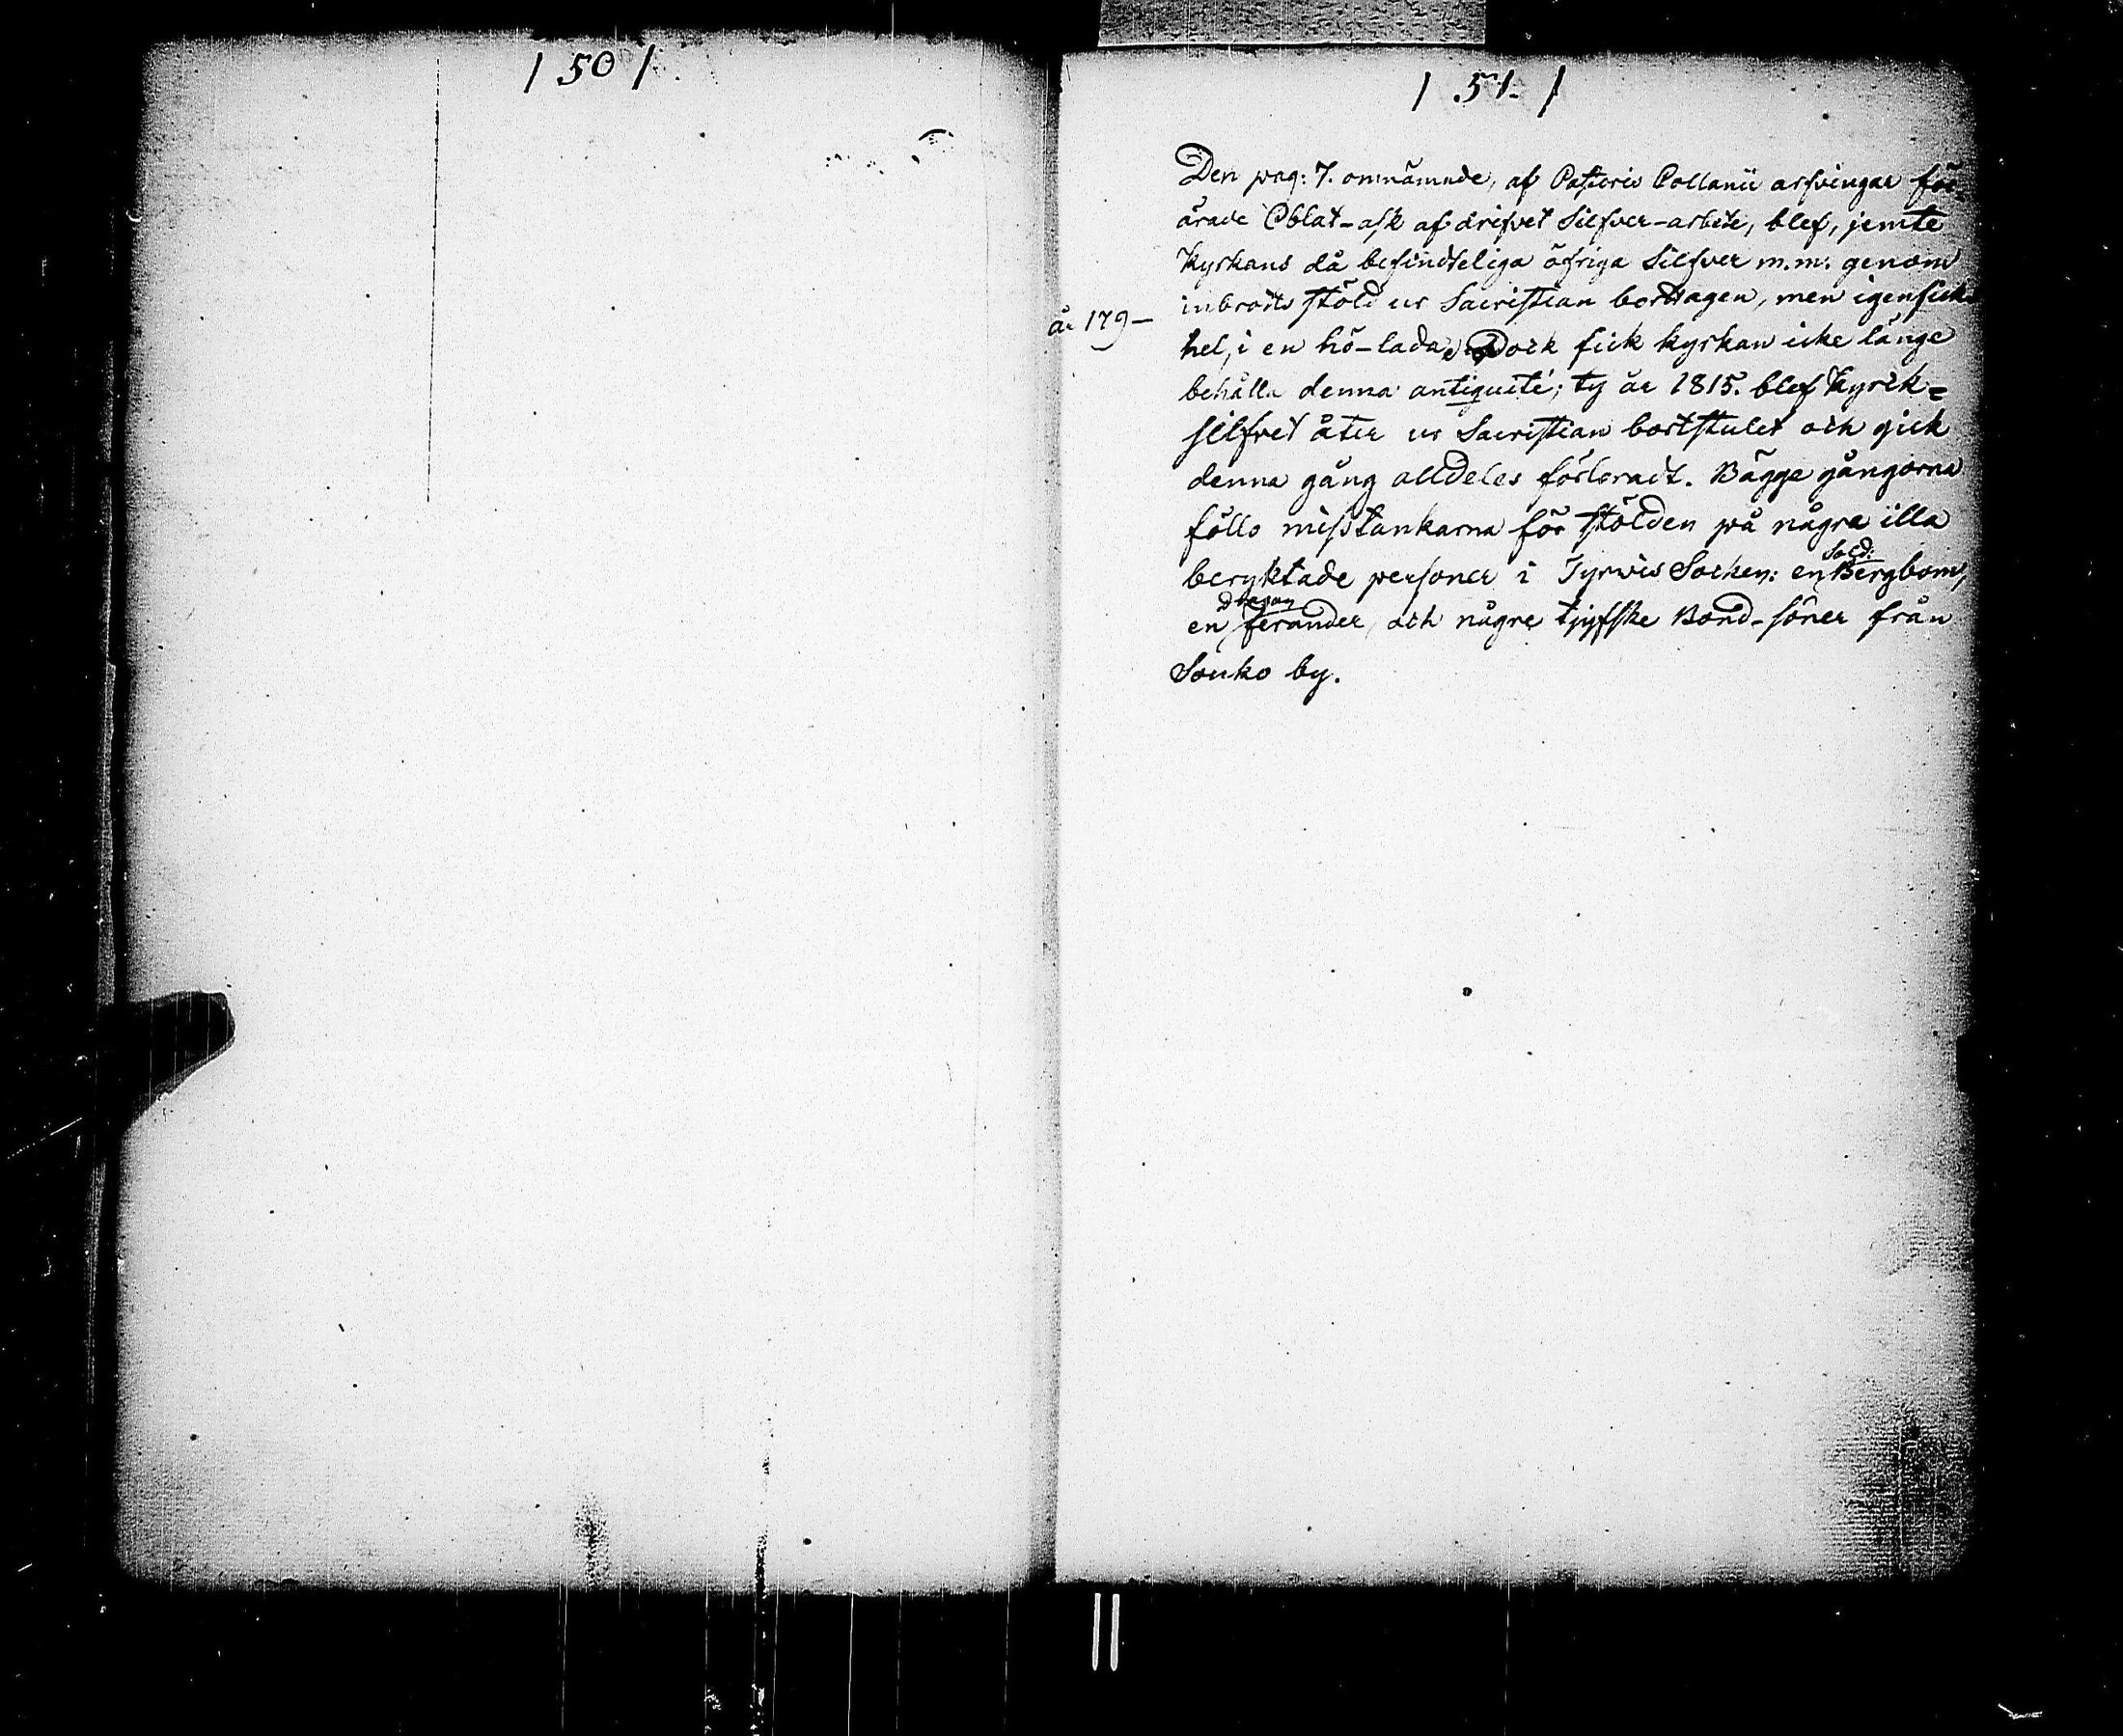 / 50 /
/ 51. /
Den pag: 7. omnämnde, af Pastoris Collanii arfvingar för-
ärade Oblat-ask af drifvet Silfver-arbete, blef, jemte
Kyrkans då befindteliga öfriga Silfver m.m. genom
inbrotts stöld ur Sacristian borttagen, men igenfick
år 179-
hel, i en hö-lada. Dock fick kyrkan icke länge
behålla denna antiquité; ty år 1815. blef Kyrck=
silfret åter ur Sacristian bortstulet och gick
denna gång alldeles förloradt. Bägge gångorna
föllo misstankarna för stölden på några illa
beryktade personer i Tyrwis Socken: en Sold: Bergbom,
en Dragon Ferander, och någre tjyfske Bond-söner från
Souko by.